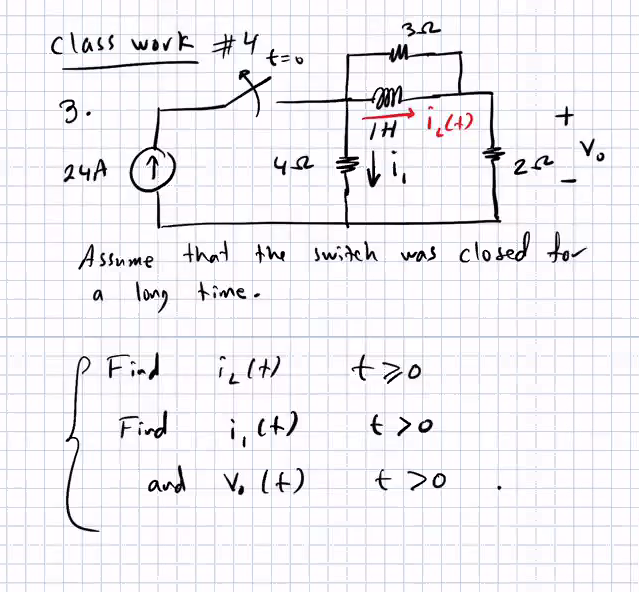 Class work #4
t=0
3Ω
3.
1H
i_L(t)
+
24A
4Ω
i₁
2Ω
V₀
−
Assume that the switch was closed for
a long time.
Find i_L(t) t⩾0
Find i₁(t) t>0
and V₀(t) t>0 .